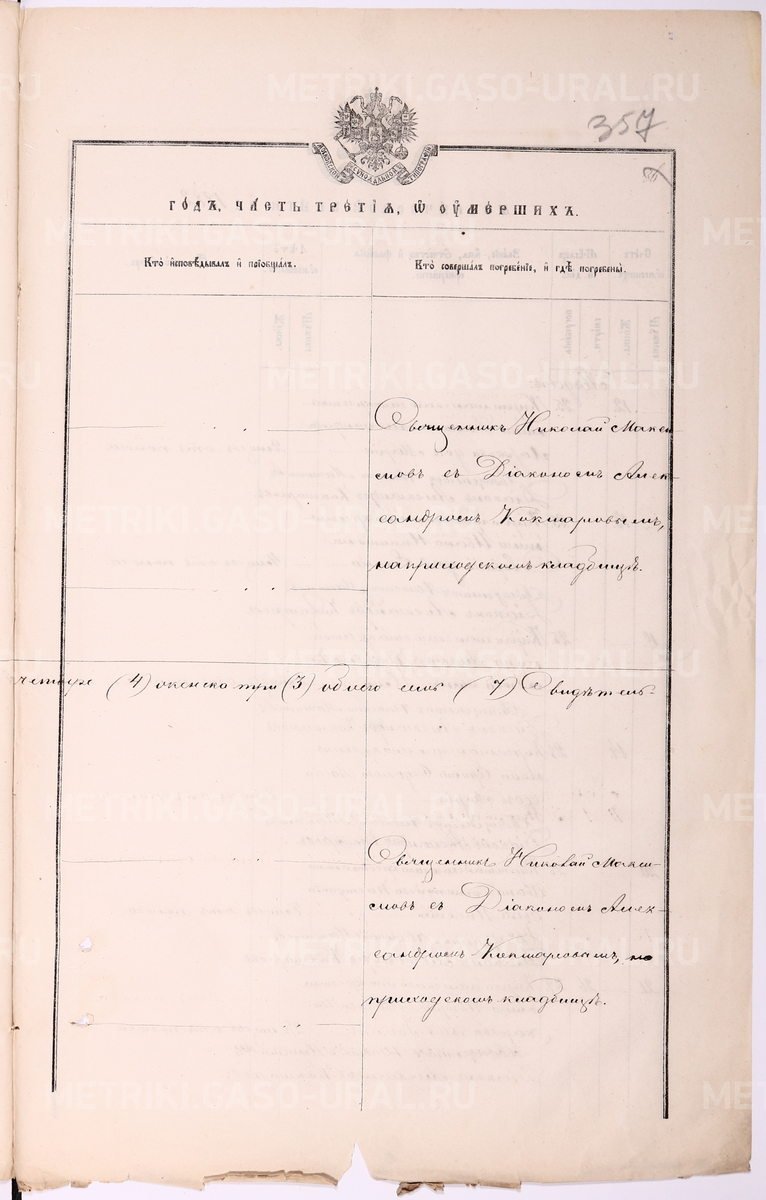 METRIKI.GASO-URAL.RU
357
ГОДА, ЧАСТЬ ТРЕТІЯ, Ѡ ОУМЕРШИХЪ.
Кто исповѣдывалъ и пріобщалъ.
Кто совершалъ погребеніе, и гдѣ погребены.
Священникъ Николай Макси
мовъ съ Діакономъ Алек-
сандромъ Кокшаровымъ,
на приходскомъ кладбищѣ.
четыре (4) женска три (3) обоего семь (7) Свидѣтель-
Священникъ Николай Макси-
мовъ съ Діакономъ Алек-
сандромъ Кокшаровымъ, на
приходскомъ кладбищѣ.